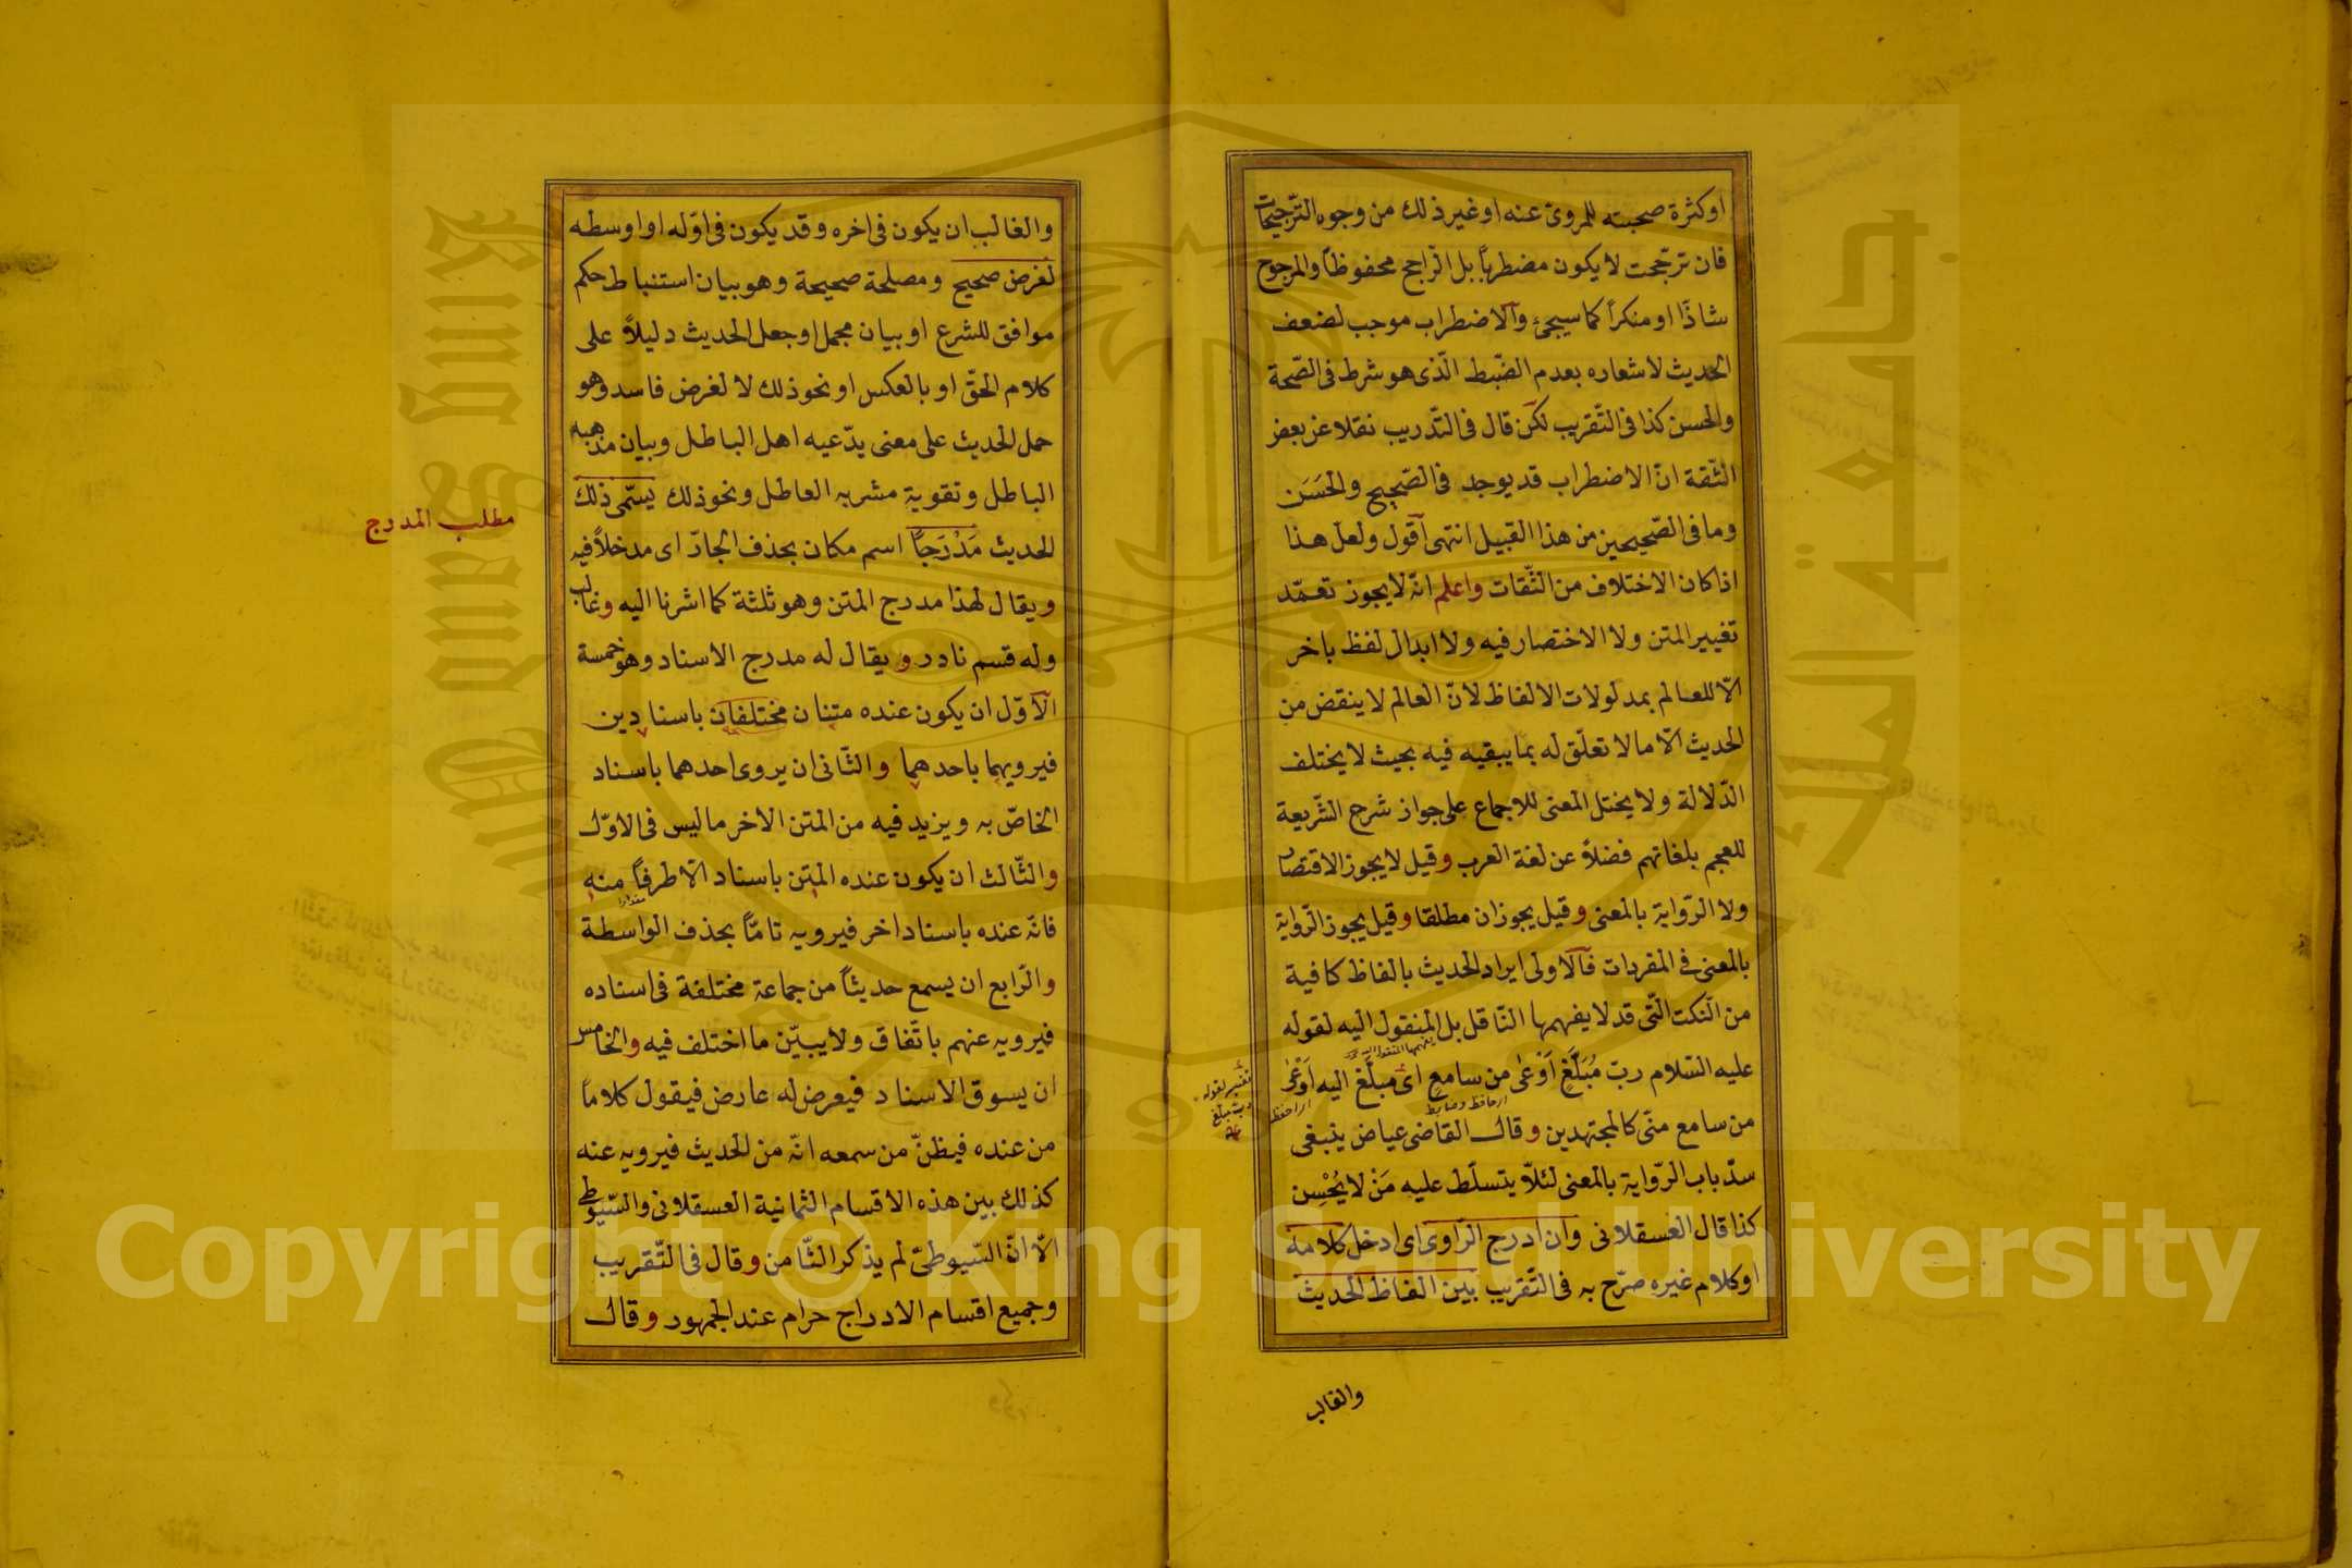 او كثرة صحبته للمروىّ عنه او غير ذلك من وجوه الترّجيحات
فان ترجّحت لا يكون مضطرباً بل الرّاجح محفوظاً والمرجوح
شاذّا او منكراً كما سيجئ والاضطراب موجب لضعف
الحديث لاشعاره بعدم الضّبط الّذى هو شرط فى الصّحة
والحسن كذا فى التّقريب لكن قال فى التّدريب نقلا عن بعض
الثّقة انّ الاضطراب قد يوجد فى الصّحيح والحَسَن
وما فى الصّحيحين من هذا القبيل انتهى اقول ولعل هذا
اذا كان الاختلاف من الثّقات واعلم انّه لا يجوز تعمّد
تغيير المتن ولا الاختصار فيه ولا ابدال لفظ باخر
الّا للعالم بمدلولات الالفاظ لانّ العالم لا ينقض من
الحديث الّا ما لا تعلّق له بما يبقيه فيه بحيث لا يختلف
الدّلالة ولا يختل المعنى للاجماع على جواز شرح الشّريعة
للعجم بلغاتهم فضلاً عن لغة العرب وقيل لا يجوز الاقتصار
ولا الرّواية بالمعنى وقيل يجوزان مطلقا وقيل يجوز الرّواية
بالمعنى فى المفردات فالاولى ايراد الحديث بالفاظ كافية
من النّكت الّتى قد لا يفهمها النّاقل بل المنقول اليه لقوله
عليه السّلام ربّ مُبَلَّغٍ اَوْعٰى من سامع اى مبلّغ اليه اَوْعٰى
تفسير لقوله
ربّ مبلغ
من سامع منّى كالمجتهدين وقال القاضى عياض ينبغى
سدّ باب الرّواية بالمعنى لئلّا يتسلّط عليه مَنْ لا يُحْسِن
كذا قال العسقلانى وان ادرج الرّاوى اى ادخل كلامه
او كلام غيره صرّح به فى التّقريب بين الفاظ الحديث
والغالب
والغالب ان يكون فى اخره وقد يكون فى اوّله او اوسطه
لغرض صحيح ومصلحة صحيحة وهو بيان استنباط حكم
موافق للشرع او بيان مجمل او جعل الحديث دليلاً على
كلام الحقّ او بالعكس او نحو ذلك لا لغرض فاسد وهو
حمل الحديث على معنى يدّعيه اهل الباطل وبيان مذهبه
الباطل وتقوية مشربه العاطل ونحو ذلك يسمّى ذلك
مطلب المدرج
الحديث مَدْرَجاً اسم مكان بحذف الجارّ اى مدخلاً فيه
ويقال لهذا مدرج المتن وهو ثلثة كما اشرنا اليه وغالب
وله قسم نادر ويقال له مدرج الاسناد وهو خمسة
الاوّل ان يكون عنده متنان مختلفان باسنادين
فيرويهما باحدهما والثّانى ان يروى احدهما باسناد
الخاصّ به ويزيد فيه من المتن الاخر ما ليس فى الاوّل
والثّالث ان يكون عنده المتن باسناد الّا طرفاً منه
فانّه عنده باسناد اخر فيرويه تامّاً بحذف الواسطة
والرّابع ان يسمع حديثاً من جماعة مختلفة فى اسناده
فيرويه عنهم باتّفاق ولا يبيّن ما اختلف فيه والخامس
ان يسوق الاسناد فيعرض له عارض فيقول كلاماً
من عنده فيظنّ من سمعه انّه من الحديث فيرويه عنه
كذلك بين هذه الاقسام الثمانية العسقلانى والسّيوطى
الّا انّ السّيوطىّ لم يذكر الثّامن وقال فى التّقريب
وجميع اقسام الادراج حرام عند الجمهور وقال
Copyright © King Saud University
جامعة الملك سعود
King Saud University